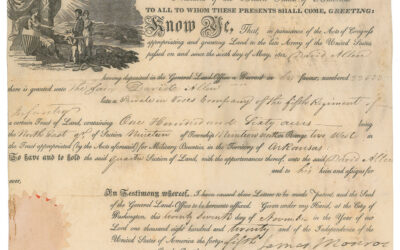 TO ALL TO WHOM THESE PRESENTS SHALL COME, GREETING:
Know Ye, That, in pursuance of the Acts of Congress
appropriating and granting Land to the late Army of the United States
passed on and since the sixth day of May, 1812 David Allen
having deposited in the General Land-Office a Warrant in his favor, numbered 22033
there is granted unto the said David Allen
late a Private in Foxes Company of the fifth Regiment of
Infantry
a certain Tract of Land, containing One Hundred and Sixty acres being
the North East qr of Section Nineteen of Township Nineteen South in Range five West in
the Tract appropriated (by the Acts aforesaid) for Military Bounties in the Territory of Arkansas
To have and to hold the said quarter Section of Land, with the appurtenances thereof, unto the said David Allen
and to his heirs and assigns for
ever.
In Testimony whereof, I have caused these Letters to be made Patent, and the Seal
of the General Land-Office to be hereunto affixed. Given under my Hand, at the City of
Washington, this twenty seventh day of November in the Year of our
Lord one thousand eight hundred and twenty and of the Independence of the
United States of America the forty fifth
James Monroe